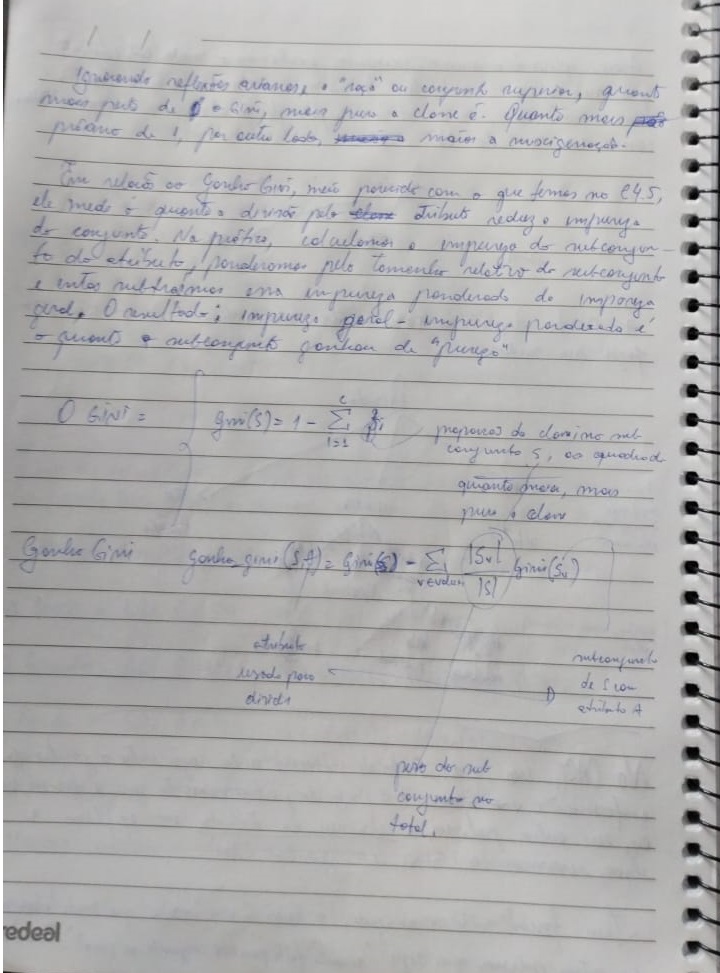 Ignorando reflexões arianas, e "raça" ou conjunto superior, quanto
mais perto de 0 o Gini, mais puro a classe é. Quanto mais
próximo de 1, por outro lado, maior a miscigenação.
Em relação ao Ganho Gini, meio parecido com o que temos no C4.5,
ele mede o quanto a divisão pelo atributo reduz a impureza
do conjunto. Na prática, calculamos a impureza do subconjun-
to do atributo, ponderamos pelo tamanho relativo do subconjunto
e então subtraímos essa impureza ponderada da impureza
geral. O resultado: impureza geral - impureza ponderada é
o quanto o subconjunto ganhou de "pureza"
O GINI = gini(S) = 1 - Σ i=1 c p²i proporção da classe no sub
conjunto S, ao quadrado
quanto maior, mais
puro a classe
Ganho Gini ganho_gini(S,A) = Gini(S) - Σ |Sv| / |S| Gini(Sv)
atributo
usado para
dividir
subconjunto
de S com
atributo A
peso do sub
conjunto no
total.
redeal